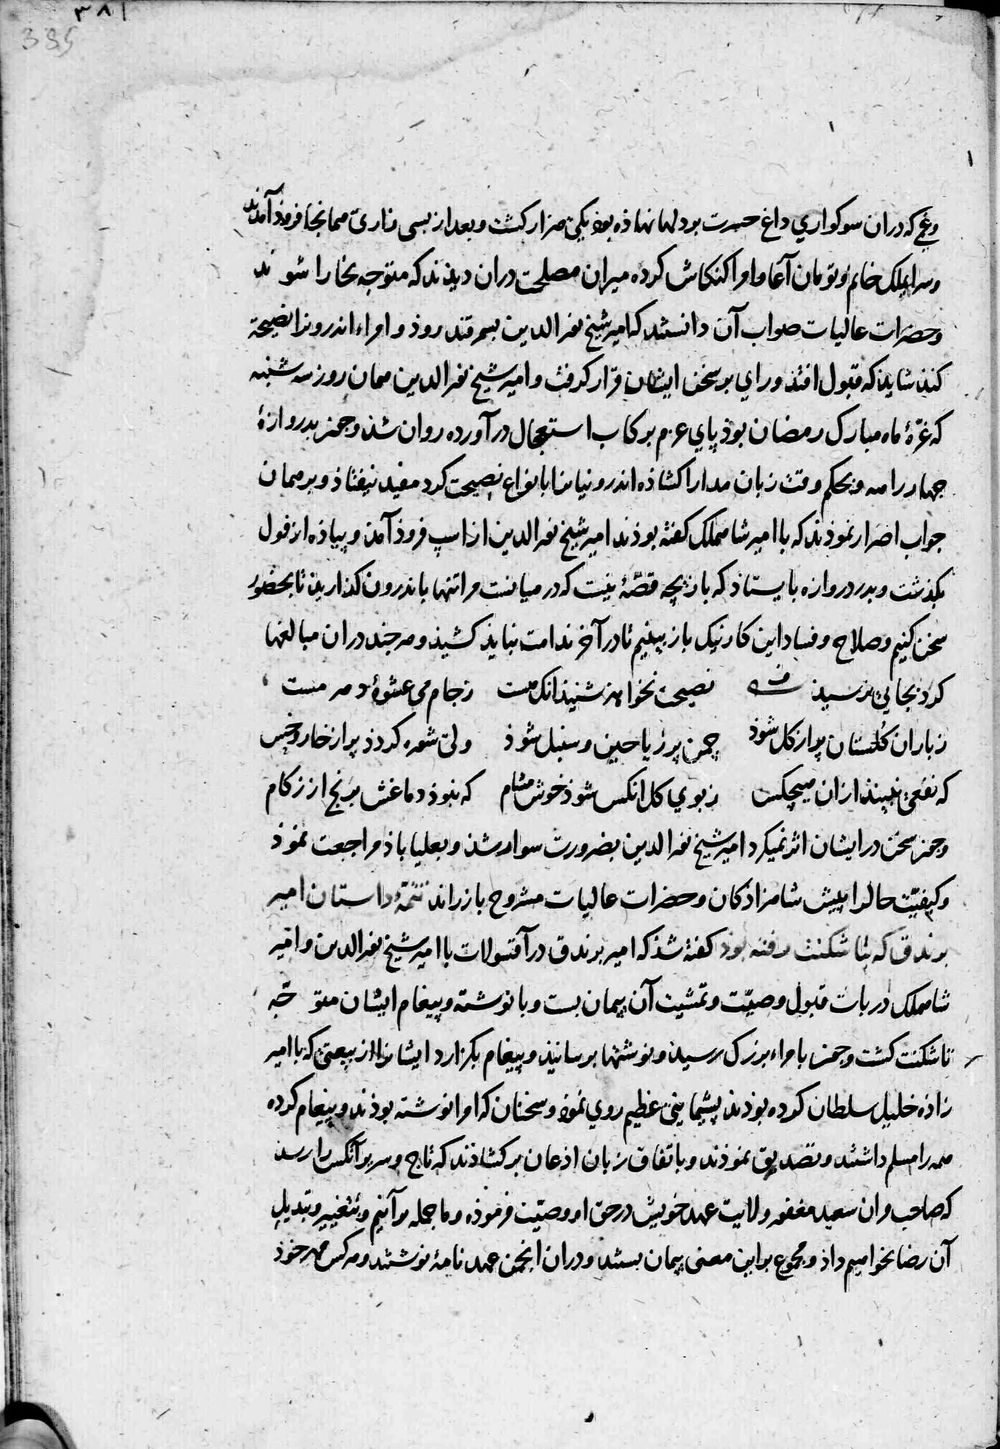 ۳۸۱
385
وغمی که دران سوکواری داغ حسرت بر دلها نهاذه بوذ یکی هزار کشت و بعد از بسی زاری همانجا فروذ آمدند
وسرایملک خانم و تومان آغا و امرا کنکاش کرده میران مصلحت دران دیذند که متوجه بخارا شوند
وحضرات عالیات صواب آن دانستند که امیر شیخ نور الدین بسمرقند روذ و امراء اندرون را نصیحة
کند شاید که قبول افتذ و رای بر سخن ایشان قرار کرفت و امیر شیخ نور الدین همان روز سه شنبه
که غرّهٔ ماه مبارک رمضان بوذ پای عزم برکاب استعجال در آورده روان شذ وچون بدروازهٔ
جهار راهه و بحکم وقت زبان مدارا کشاذه اندرونیانرا بانواع نصیحت کرد مفید نیفتاذ و بر همان
جواب اصرار نموذند که با امیر شاهملک کفته بوذند امیر شیخ نور الدین از اسپ فروذ آمذ و پیاذه از قول
بکذشت و بدر دروازه بایستاذ که بازیجه قصّهٔ نیست که در میانست مرا تنها باندرون کذارید تا بحضور
سخن کنیم و صلاح و فساد این کار نیک باز بینیم تا در آخر ندامت نباید کشیذ و هر جند دران مبالغها
کرد بجایی نرسیذ نصیحت نخواهد شنیذ انک هست ز جام می عشوهٔ دهر مست
ز باران کلستان پر از کل شوذ چمن پر ز یاحین و سنبل شوذ ولی شوره کردذ پر از خار و خس
که نفعی نبیند ازان هیچکس ز بوی کل انکس شوذ خوش مشام که نبوذ دماغش برنج از زکام
وچون سخن در ایشان اثر نمیکرد امیر شیخ نور الدین بضرورت سوار شذ و بعلیاباذ مراجعت نموذ
وکیفیّت حالرا پیش شاهزاذکان و حضرات عالیات مشروح باز راند تتمّهٔ داستان امیر
برندق که بتاشکنت رفته بوذ کفته شذ که امیر برندق در آقسولات با امیر شیخ نور الدین و امیر
شاهملک در باب قبول وصیّت و تمشیت آن پیمان بست و با نوشته و پیغام ایشان متوجّه
تاشکنت کشت وچون بامراء بزرک رسید و نوشتها برسانیذ و پیغام بکزارد ایشانرا از بیعتی که با امیر
زاده خلیل سلطان کرده بوذند پشیمانی عظیم روی نموذ و سخنان که امرا نوشته بوذند و پیغام کرده
همه را مسلم داشتند و تصدیق نموذند و باتفاق زبان اذعان برکشاذند که تاج و سریر آنکس را رسذ
که صاحب قران سعید مغفور ولایت عهد خویش در حق او وصیّت فرموذه و ما جمله برآنیم و بتغییر و تبدیل
آن رضا نخواهیم داذ و مجموع براین معنی پیمان بستند و دران انجمن عهد نامهٔ نوشتند و هر کس مهر خوذ